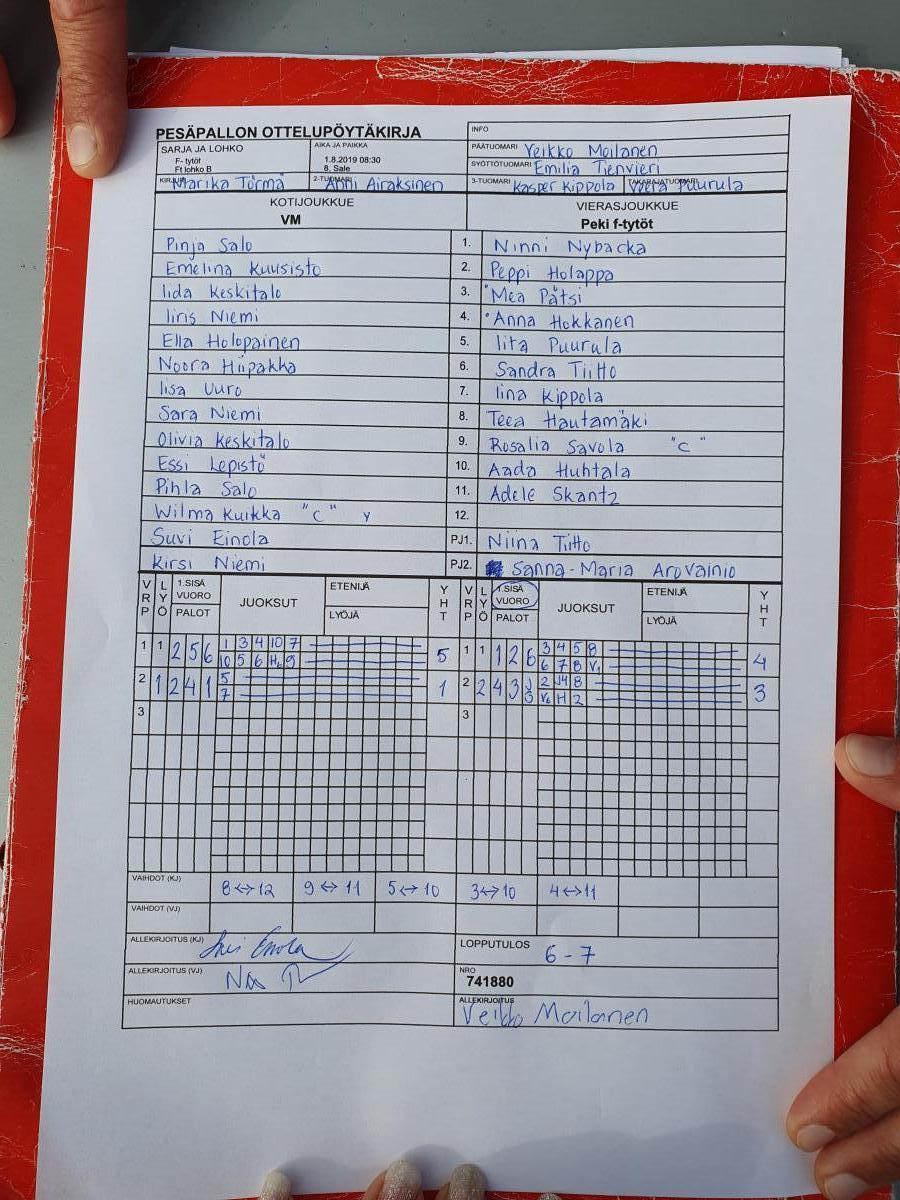 PESÄPALLON OTTELUPÖYTÄKIRJA
INFO
SARJA JA LOHKO
F- tytöt
Ft lohko B
AIKA JA PAIKKA
1.8.2019 08:30
8, Sale
PÄÄTUOMARI Veikko Moilanen
SYÖTTÖTUOMARI Emilia Tienvieri
KIRJURI Marika Törmä
2-TUOMARI Anni Airaksinen
3-TUOMARI Kasper Kippola
TAKARAJATUOMARI Veera Puurula
KOTIJOUKKUE
VM
VIERASJOUKKUE
Peki f-tytöt
Pinja Salo 1. Ninni Nybacka
Emelina Kuusisto 2. Peppi Holappa
Iida Keskitalo 3. Mea Pätsi
Iiris Niemi 4. Anna Hokkanen
Ella Holopainen 5. Iita Puurula
Noora Hiipakka 6. Sandra Tiitto
Iisa Vuro 7. Iina Kippola
Sara Niemi 8. Teea Hautamäki
Olivia Keskitalo 9. Rosalia Savola "C"
Essi Lepistö 10. Aada Huhtala
Pihla Salo 11. Adele Skantz
Wilma Kuikka "C" Y 12.
Suvi Einola PJ1. Niina Tiitto
Kirsi Niemi PJ2. Sanna-Maria Arovainio
VRP LYÖ 1.SISÄ VUORO PALOT JUOKSUT ETENIJÄ LYÖJÄ YHT VRP LYÖ 1.SISÄ VUORO PALOT JUOKSUT ETENIJÄ LYÖJÄ YHT
1 1 2 5 6 1 3 4 10 7 5 1 1 1 2 6 3 4 5 8 4
10 5 6 9 6 7 8
2 1 2 4 1 5 1 2 2 4 3 2 J4 8 3
7 H 2
3 3
VAIHDOT (KJ) 8↔12 9↔11 5↔10 3↔10 4↔11
VAIHDOT (VJ)
ALLEKIRJOITUS (KJ)
LOPPUTULOS
6-7
ALLEKIRJOITUS (VJ)
NRO
741880
HUOMAUTUKSET
ALLEKIRJOITUS
Veikko Moilanen